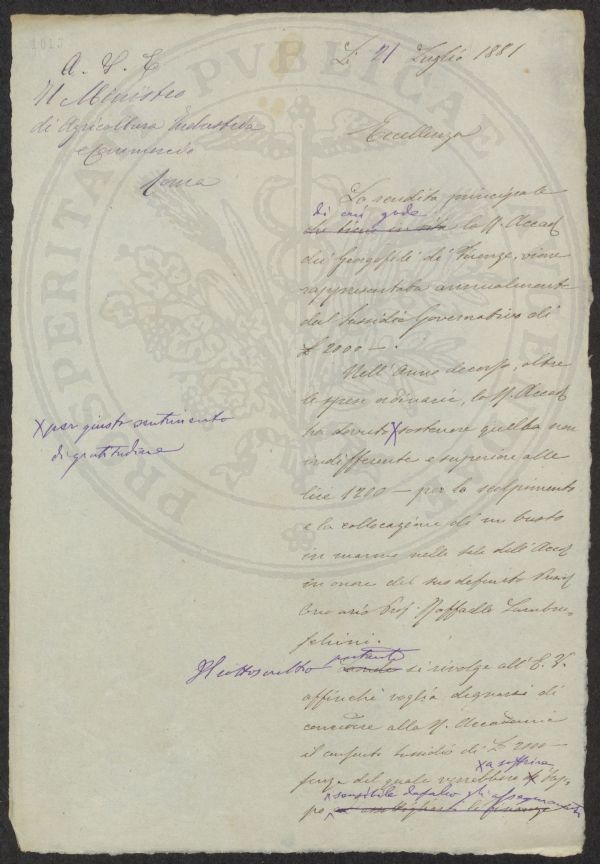 1015
A. S. E
Il Ministro
di Agricoltura Industria
e Commercio
Roma
Li 21 Luglio 1881
Eccellenza
La rendita principale
di cui gode
che tiene in sè la R. Accad
dei Georgofili di Firenze, viene
rappresentata annualmente
dal Sussidio Governativo di
£ 2000 —.
Nell'Anno decorso, oltre
le spese ordinarie, la R. Accad
ha dovuto X sostenere quella non
X per giusto sentimento
di gratitudine
indifferente e superiore alle
lire 1200 — per lo scolpimento
e la collocazione di un busto
in marmo nelle sale dell'Accad
in onore del suo defunto Presid
Onorario Prof. Raffaello Lambru-
schini.
Il sottoscritto pertanto
si rivolge all'E. V.
affinchè voglia degnarsi di
concedere alla R. Accademia
il consueto sussidio di £ 2000 —
senza del quale verrebbero
X a soffrire
sensibile
PROSPERITATI PVBLICAE